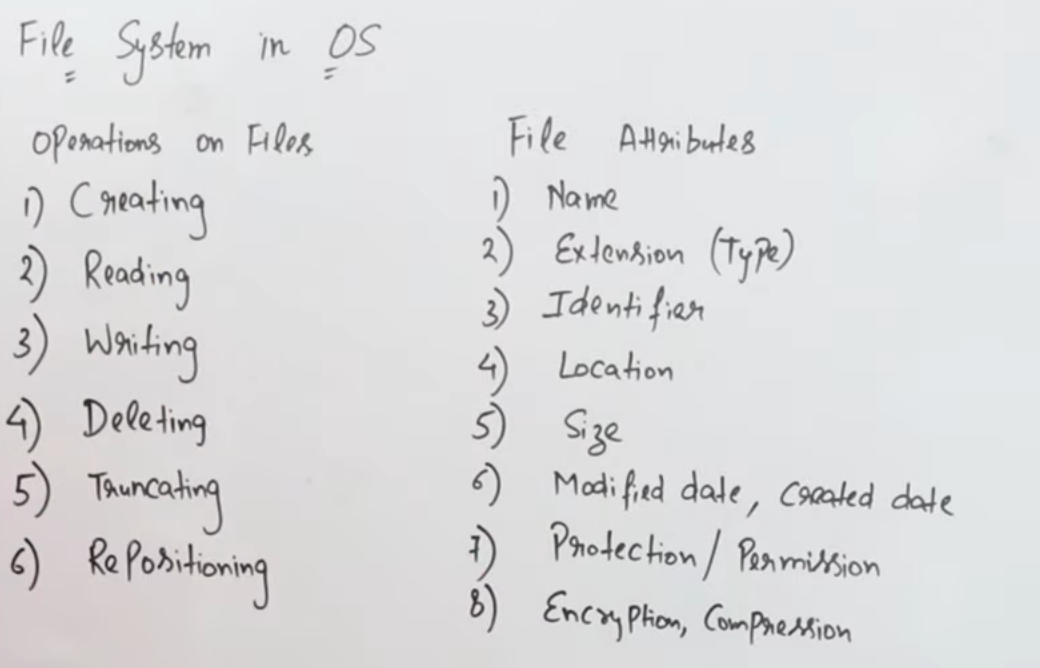 File System in OS
Operations on Files
1) Creating
2) Reading
3) Writing
4) Deleting
5) Truncating
6) RePositioning
File Attributes
1) Name
2) Extension (Type)
3) Identifier
4) Location
5) Size
6) Modified date, Created date
7) Protection / Permission
8) Encryption, Compression